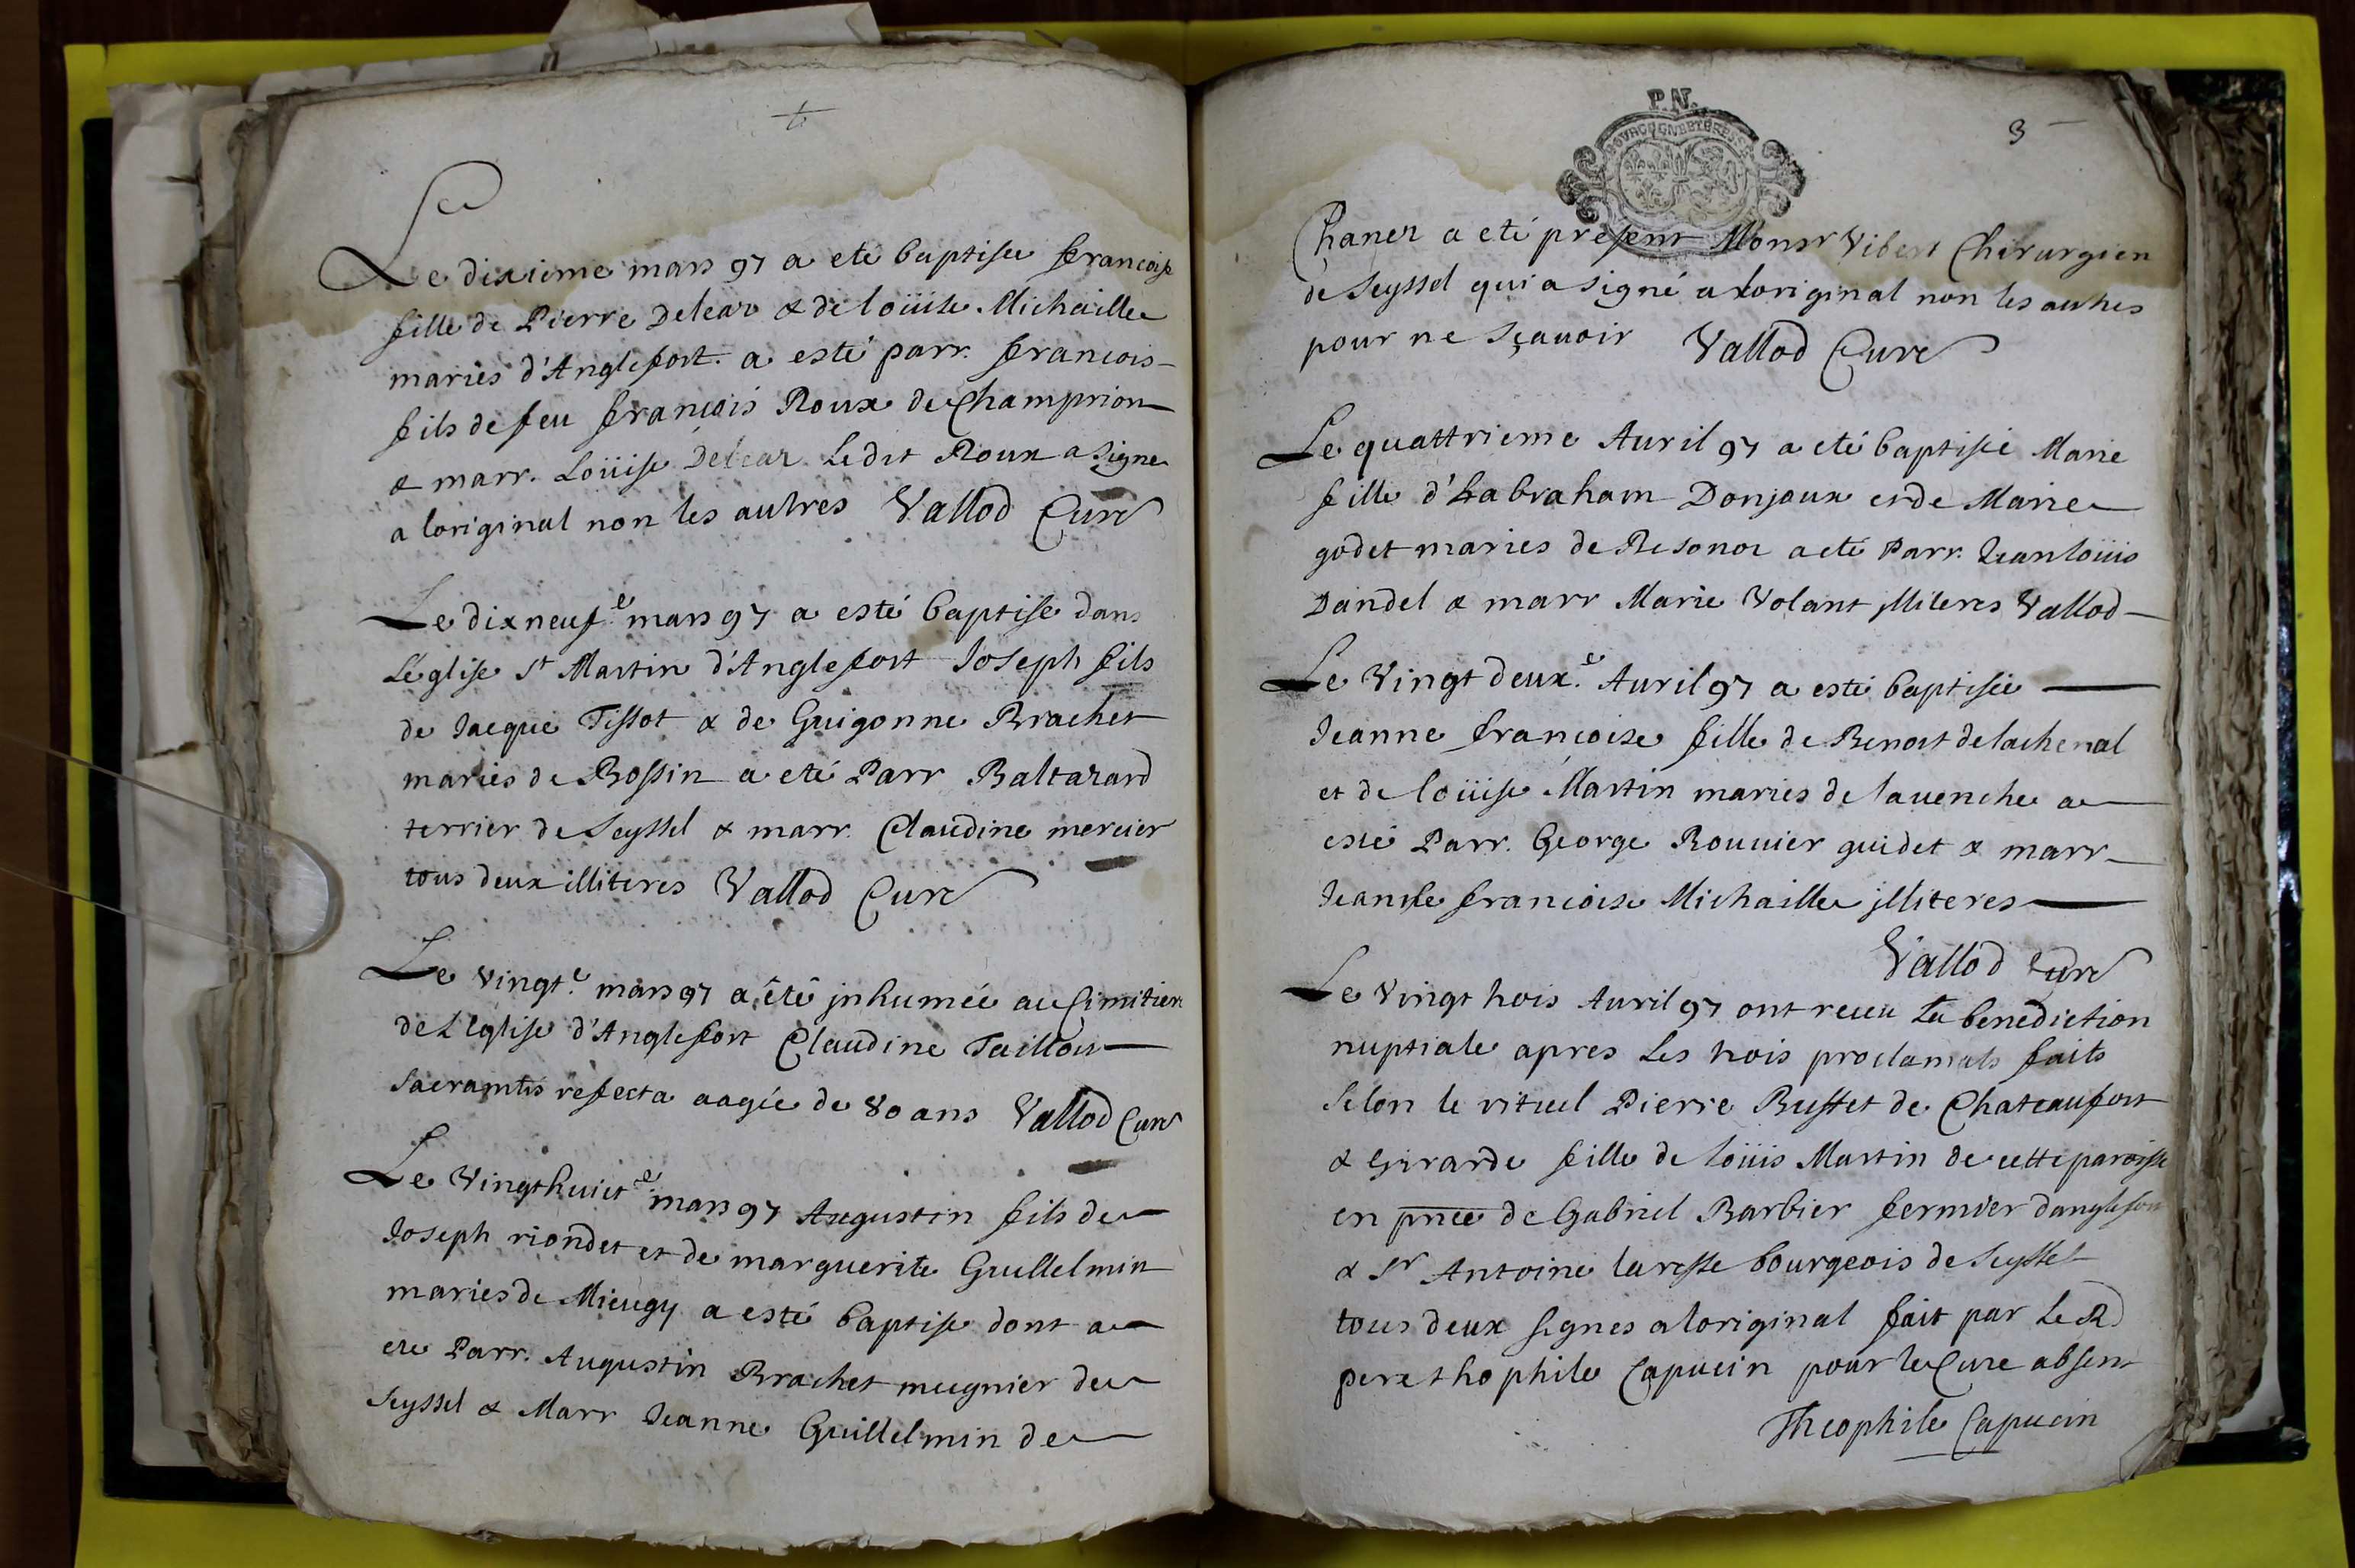 Le dixieme mars 97 a eté baptisée francoise
fille de Pierre Delear & de loüise Michaille
mariés d'Anglefort. a esté parr. francois
fils de feu francois Roux de Champrion
& marr. Loüise Delear Ledit Roux a signe
a loriginal non les autres Vallod Curé
Le dixneuf.e mars 97 a esté baptise dans
Léglise St Martin d'Anglefort Joseph fils
de Jacque Tissot & de Guigonne Brachet
mariés de Bossin a eté Parr Baltazard
terrier de Seyssel & marr. Claudine mercier
tous deux illiteres Vallod Curé
Le vingt.e mars 97 a été jnhumée au Cimitiere
de Léglise d'Anglefort Claudine Taillon
Sacramtis refecta aagée de 80 ans Vallod Curé
Le Vingthuict.e mars 97 Augustin fils de
Joseph riondet et de marguerite Guillelmin
mariés de Mieugy a esté baptise dont a
ete Parr. Augustin Brachet meugnier de
Seyssel & Marr Jeanne Guillelmin de
P.N.
3
BOURGOGNE ET BRESSE
Chanez a eté présent Monsr Vibert Chirurgien
de Seyssel qui a signé a loriginal non les autres
pour ne sçavoir Vallod Curé
Le quattrieme Auril 97 a eté baptisée Marie
fille d'habraham Donjoux et de Marie
godet mariés de Resonoz a eté Parr. Jean loüis
Dandel & marr Marie Volant jlliteres Vallod
Le Vingt deux.e Auril 97 a esté baptisée
Jeanne francoise fille de Benoit delachenal
et de loüise Martin mariés de lavenche a
esté Parr. George Rouuier guidet & marr
Jeanne francoise Michaille jlliteres
Vallod Curé
Le Vingt trois Auril 97 ont receu La benediction
nuptiale apres Les trois proclamats faits
selon le rituel Pierre Bustet de Chateaufort
& Girarde fille de loüis Martin de cette paroisse
en pnce de Gabriel Barbier fermier danglefort
& Sr Antoine laresse bourgeois de Seyssel
tous deux signes a loriginal fait par Le Rd
pere thophile Capucin pour le Cure absent
Theophile Capucin